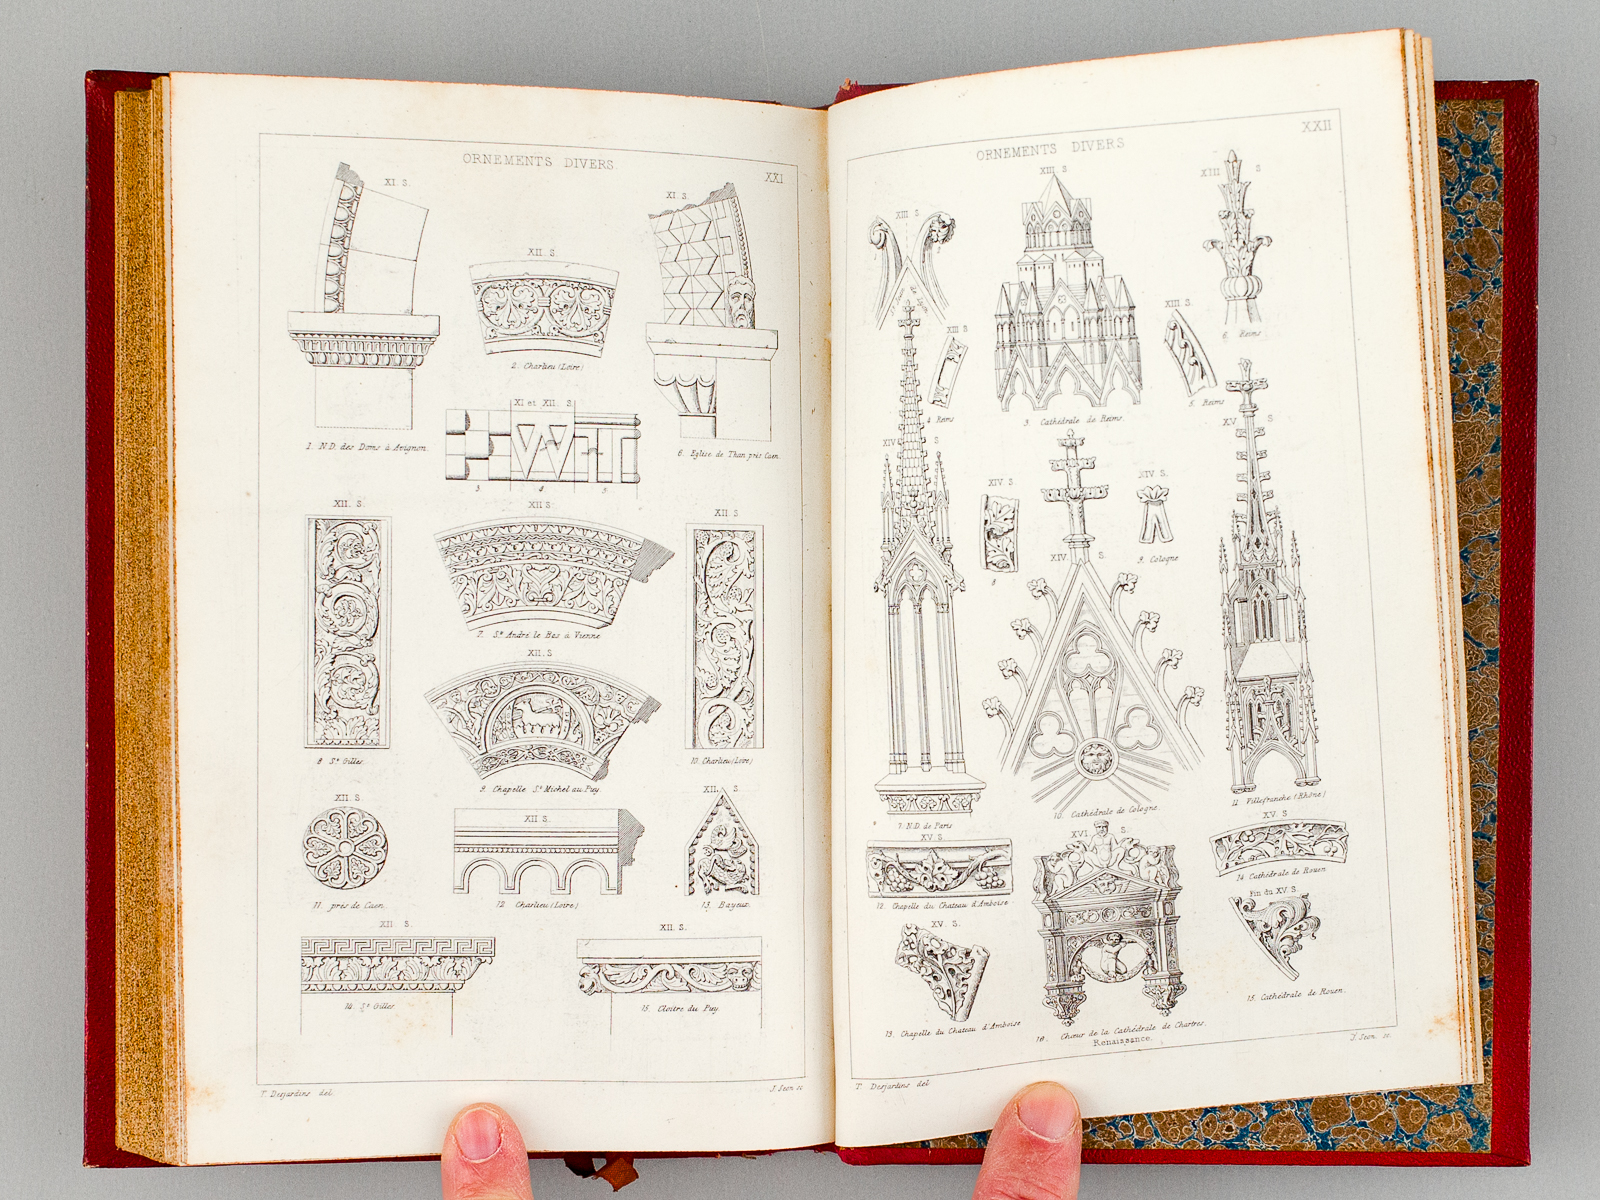 ORNEMENTS DIVERS.
XXI.
XI. S.
XI. S.
XII. S.
2. Charlieu (Loire)
XI et XII. S.
1. N.D. des Doms à Avignon.
6. Eglise de Than près Caen.
3. 4. 5.
XII. S.
XII S.
XII. S
7. St. André le Bas à Vienne
XII. S
8. St. Gilles.
9. Chapelle St. Michel au Puy.
10. Charlieu (Loire)
XII. S
XII. S.
XII. S
11. près de Caen.
12. Charlieu (Loire)
13. Bayeux.
XII. S.
XII. S.
14. St. Gilles.
15. Cloître du Puy.
T. Desjardins del.
J. Seon sc.
ORNEMENTS DIVERS
XXII
XIII S
XIII. S
XIII S
XIII S
XIII. S
6. Reims
4. Reims
3. Cathédrale de Reims.
5. Reims
XIV S
XV S
XIV. S
XIV. S.
8
9. Cologne
XIV. S.
7. N.D. de Paris
10. Cathédrale de Cologne.
11. Villefranche (Rhône)
XV. S.
XVI S.
XV. S
12. Chapelle du Chateau d'Amboise
14. Cathédrale de Rouen
Fin du XV. S.
XV. S.
13. Chapelle du Chateau d'Amboise
16. Chœur de la Cathédrale de Chartres.
Renaissance.
15. Cathédrale de Rouen.
T. Desjardins del
J. Seon sc.